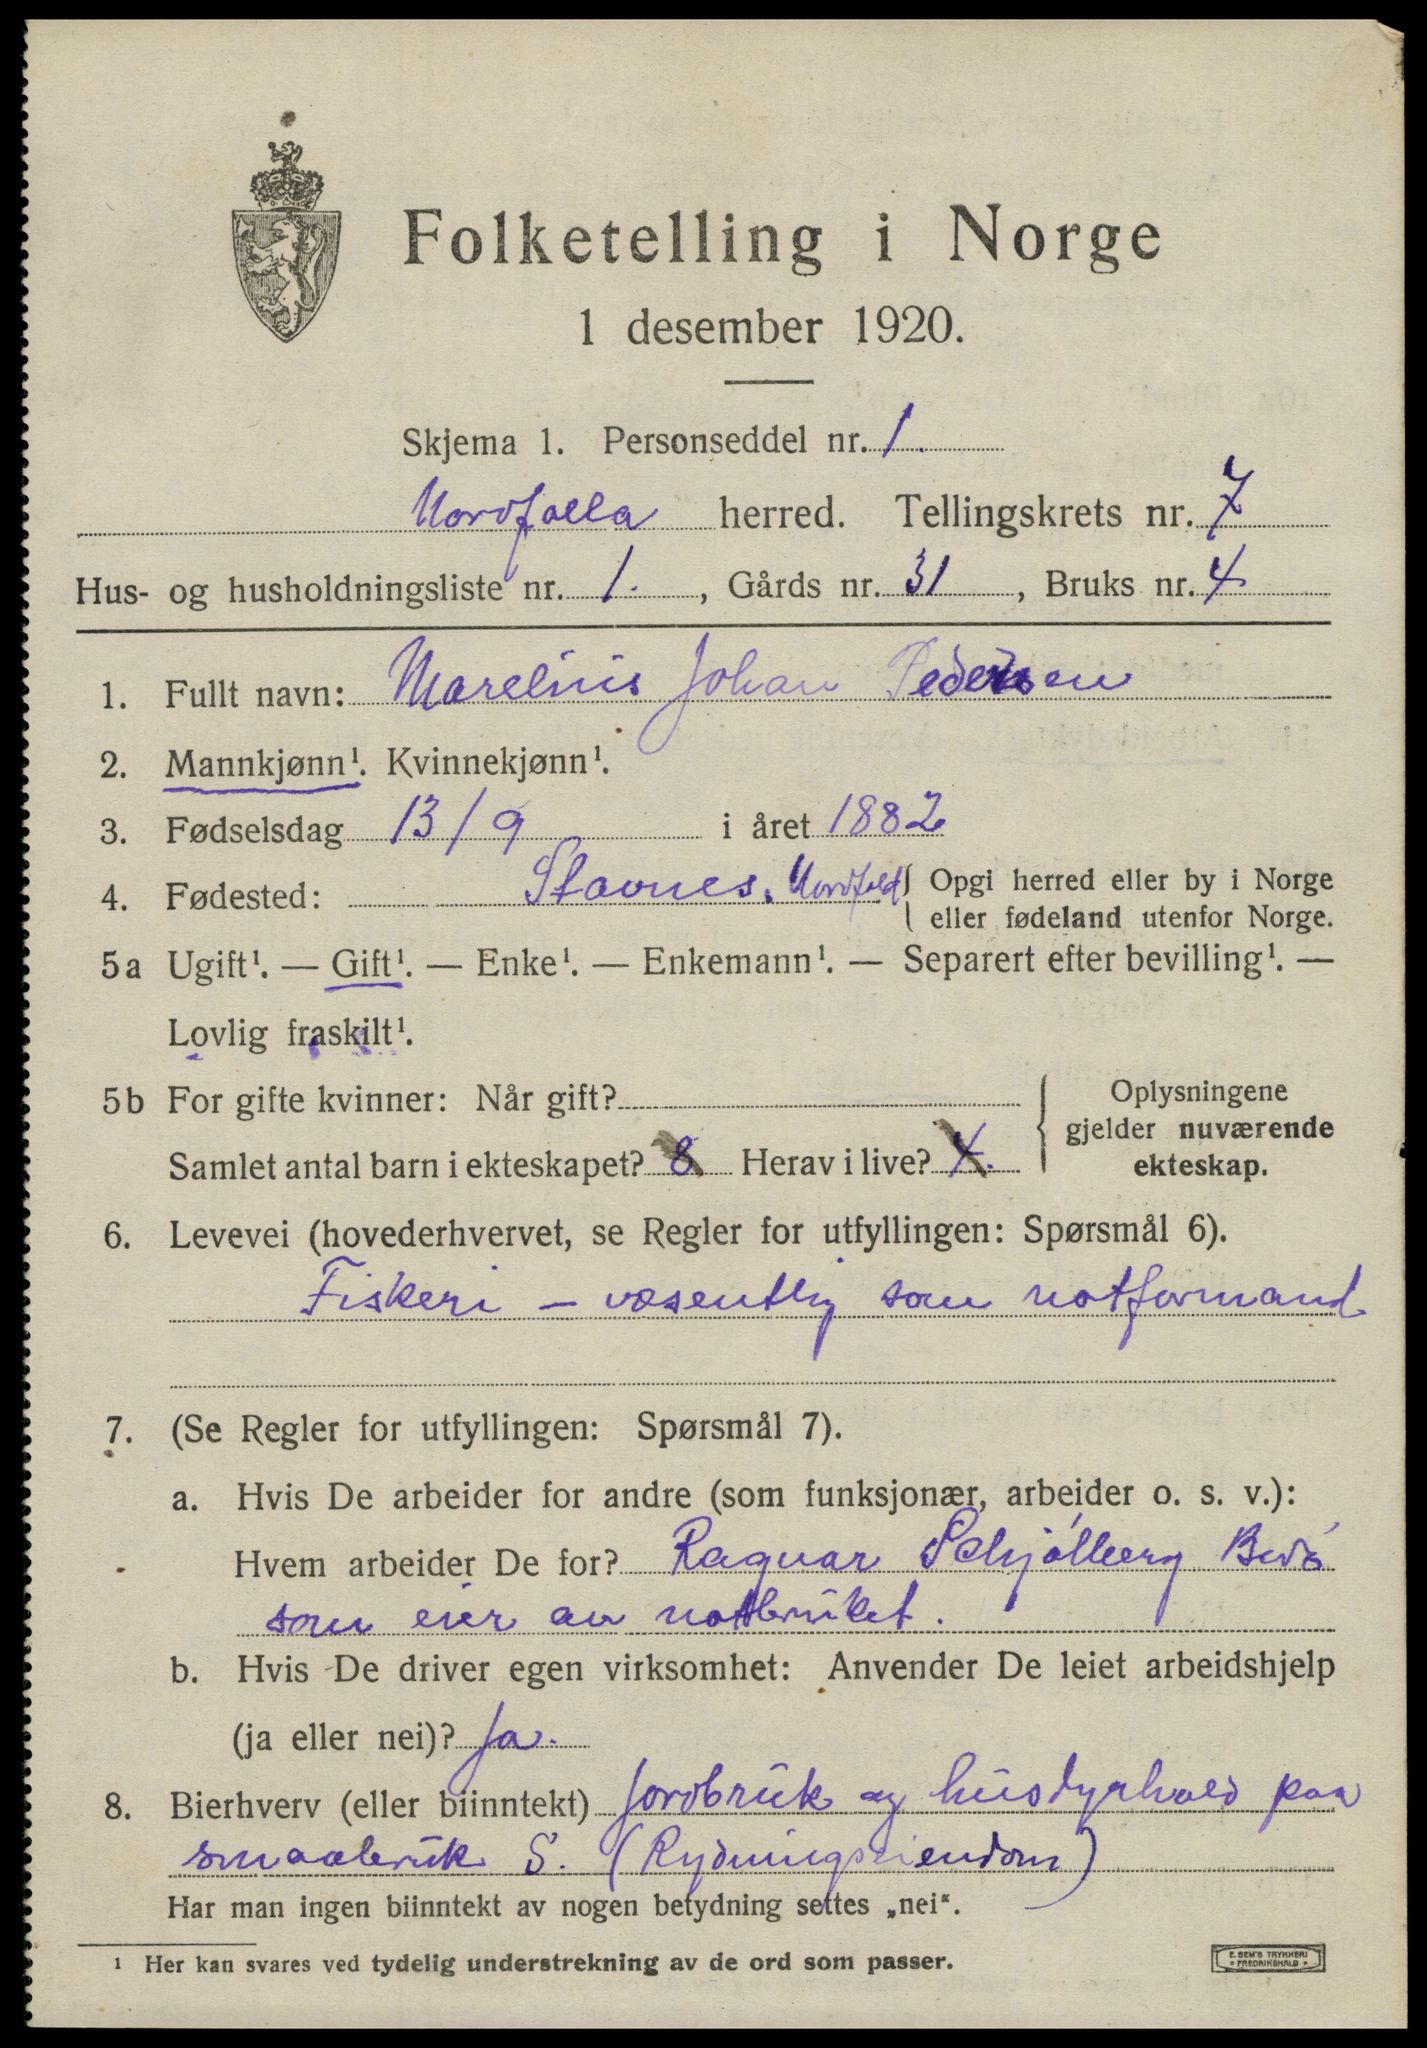 Folketelling i Norge
1 desember 1920.
Skjema 1. Personseddel nr. 1.
Nordfolla herred. Tellingskrets nr. 7
Hus- og husholdningsliste nr. 1. , Gårds nr. 31 , Bruks nr. 4
1. Fullt navn: Marelius Johan Pedersen
2. Mannkjønn¹. Kvinnekjønn¹.
3. Fødselsdag 13/9 i året 1882
4. Fødested: Stavnes. Nordfold { Opgi herred eller by i Norge
eller fødeland utenfor Norge.
5a Ugift¹. — Gift¹. — Enke¹. — Enkemann¹. — Separert efter bevilling¹. —
Lovlig fraskilt¹.
5b For gifte kvinner: Når gift?
Samlet antal barn i ekteskapet? 8 Herav i live? 4.
Oplysningene
gjelder nuværende
ekteskap.
6. Levevei (hovederhvervet, se Regler for utfyllingen: Spørsmål 6).
Fiskeri – væsentlig som notformand
7. (Se Regler for utfyllingen: Spørsmål 7).
a. Hvis De arbeider for andre (som funksjonær, arbeider o. s. v.):
Hvem arbeider De for? Ragnar Schjølberg Bodø
som eier av notbruket.
b. Hvis De driver egen virksomhet: Anvender De leiet arbeidshjelp
(ja eller nei)? Ja.
8. Bierhverv (eller biinntekt) Jordbruk og husdyrhold paa
smaabruk S. (Rydningseiendom)
Har man ingen biinntekt av nogen betydning settes „nei“.
¹ Her kan svares ved tydelig understrekning av de ord som passer.
E. SEM'S TRYKKERI
• FREDRIKSHALD •